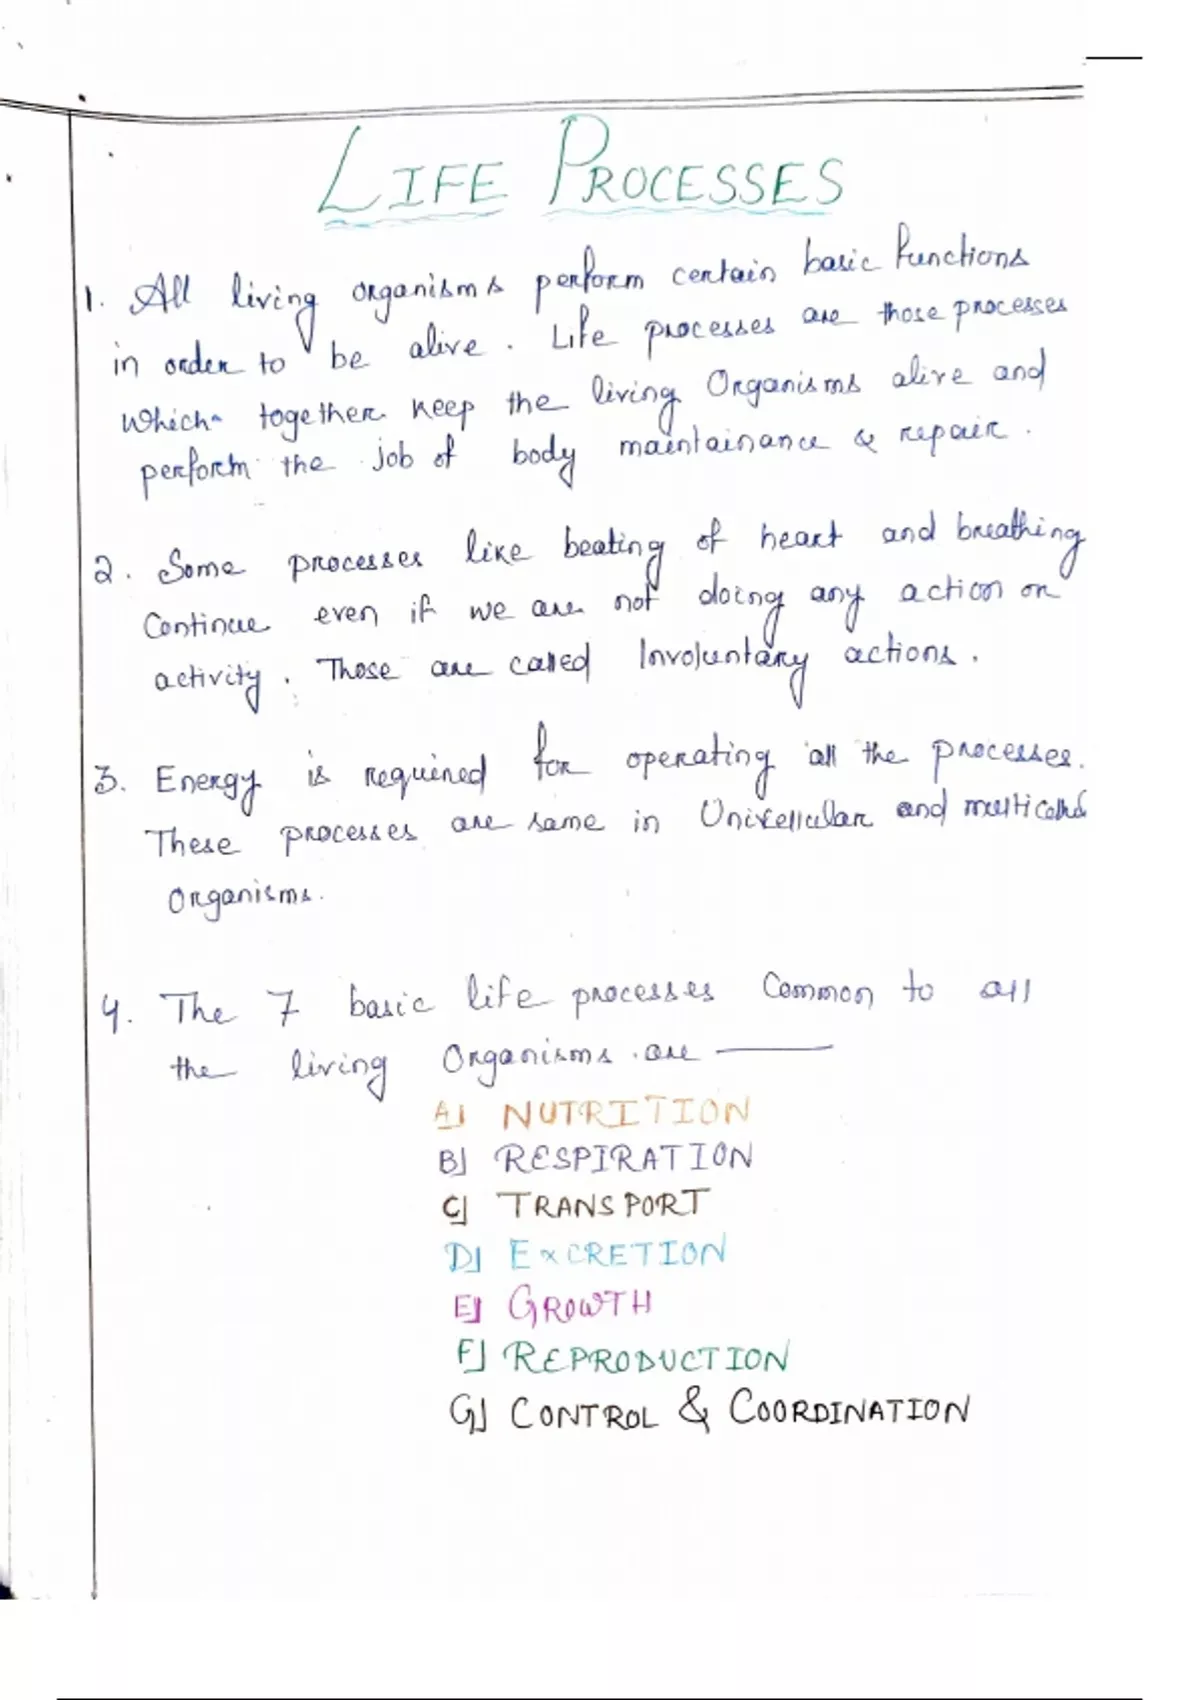 LIFE PROCESSES
1. All living organisms perform certain basic functions
in order to be alive. Life processes are those processes
which together keep the living Organisms alive and
perform the job of body maintainance & repair.
2. Some processes like beating of heart and breathing
Continue even if we are not doing any action or
activity. Those are called Involuntary actions.
3. Energy is required for operating all the processes.
These processes are same in Unicellular and
Organisms.
4. The 7 basic life processes Common to all
the living Organisms are —
A] NUTRITION
B] RESPIRATION
C] TRANSPORT
D] EXCRETION
E] GROWTH
F] REPRODUCTION
G] CONTROL & COORDINATION